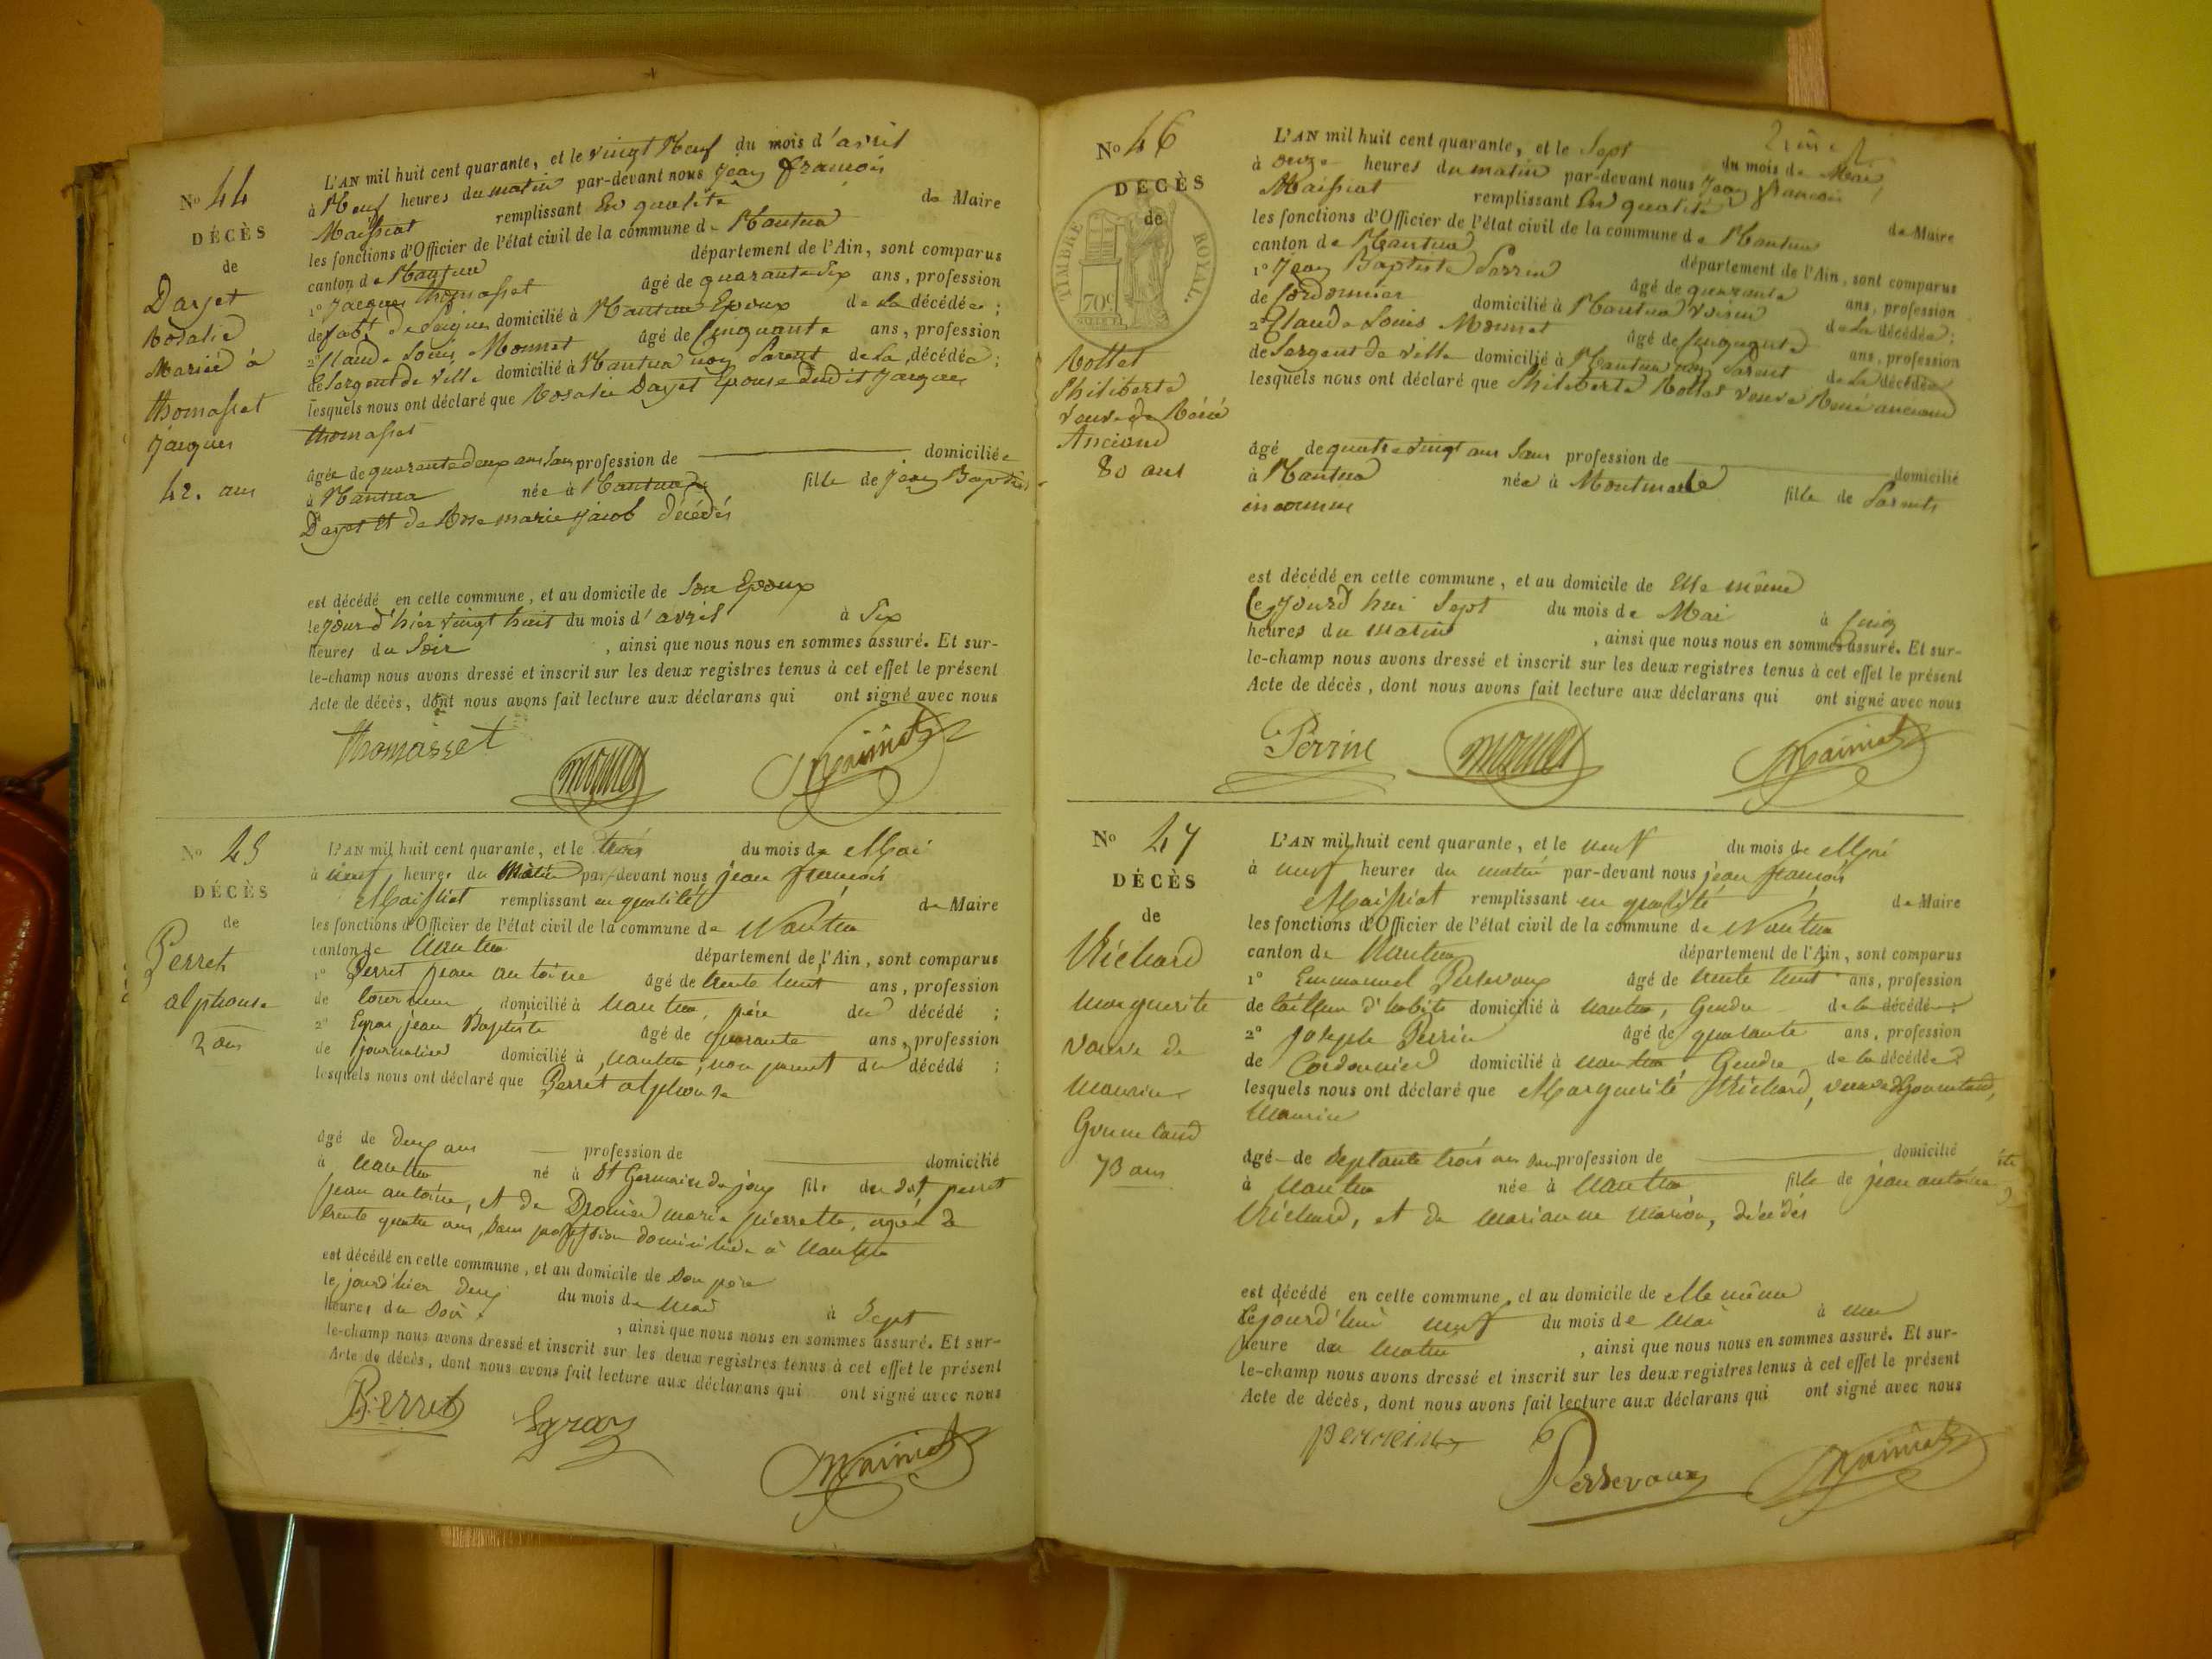 No 44
DÉCÈS
de
Dayet
Rosalie
Mariée à
Thomasset
Jacques
42. ans
L'AN mil huit cent quarante, et le vingt Neuf du mois d'avril
à Neuf heures du matin par-devant nous Jean François
Maissiat remplissant En qualité de Maire
les fonctions d'Officier de l'état civil de la commune de Nantua
canton de Nantua département de l'Ain, sont comparus
1° Jacques Thomasset âgé de quarante Six ans, profession
de domicilié à Nantua Epoux de La décédée ;
2° Claude Louis Monnet âgé de Cinquante ans, profession
de Sergent de Ville domicilié à Nantua non Parent de La décédée ;
lesquels nous ont déclaré que Rosalie Dayet Epouse dudit Jacques
Thomasset
âgée de quarante deux ans Sans profession de domiciliée
à Nantua née à Nantua fille de Jean Baptiste
Dayet et de Rose marie Jacob décédés
est décédé en cette commune, et au domicile de Son Epoux
le jour d'hier vingt huit du mois d'avril à Six
heures du Soir , ainsi que nous nous en sommes assuré. Et sur-
le-champ nous avons dressé et inscrit sur les deux registres tenus à cet effet le présent
Acte de décès, dont nous avons fait lecture aux déclarans qui ont signé avec nous
Thomasset Monnet Maissiat
No 45
DÉCÈS
de
Perret
alphonse
2 ans
L'AN mil huit cent quarante, et le trois du mois de Mai
à neuf heures du Matin par-devant nous jean françois
Maissiat remplissant en qualité de Maire
les fonctions d'Officier de l'état civil de la commune de Nantua
canton de Nantua département de l'Ain, sont comparus
1° Perret jean antoine âgé de trente huit ans, profession
de tourneur domicilié à Nantua, père du décédé ;
2° Egraz jean Baptiste âgé de quarante ans, profession
de journalier domicilié à Nantua, non parent du décédé ;
lesquels nous ont déclaré que Perret alphonse
âgé de deux ans profession de domicilié
à Nantua né à St Germain de joux fils du dit perret
jean antoine, et de marie pierrette, agée de
trente quatre ans, sans profession domiciliée à Nantua
est décédé en cette commune, et au domicile de Son père
le jourd'hier deux du mois de Mai à Sept
heures du Soir , ainsi que nous nous en sommes assuré. Et sur-
le-champ nous avons dressé et inscrit sur les deux registres tenus à cet effet le présent
Acte de décès, dont nous avons fait lecture aux déclarans qui ont signé avec nous
Perret Egraz Maissiat
No 46
DÉCÈS
de
TIMBRE ROYAL.
70c
Rollet
Philiberte
Veuve de Réné
Anciand
80 ans
L'AN mil huit cent quarante, et le Sept du mois de Mai
à onze heures du matin par-devant nous Jean françois
Maissiat remplissant En qualité de Maire
les fonctions d'Officier de l'état civil de la commune de Nantua
canton de Nantua département de l'Ain, sont comparus
1° Jean Baptiste Perrin âgé de quarante ans, profession
de Cordonnier domicilié à Nantua Voisin de La décédée ;
2° Claude Louis Monnet âgé de Cinquante ans, profession
de Sergent de Ville domicilié à Nantua non Parent de La décédée
lesquels nous ont déclaré que Philiberte Rollet Veuve Réné anciand
âgé de quatre vingt ans Sans profession de domicilié
à Nantua née à fille de Parents
inconnus
est décédé en cette commune, et au domicile de Elle même
Cejourd'hui Sept du mois de Mai à Cinq
heures du matin , ainsi que nous nous en sommes assuré. Et sur-
le-champ nous avons dressé et inscrit sur les deux registres tenus à cet effet le présent
Acte de décès, dont nous avons fait lecture aux déclarans qui ont signé avec nous
Perrin Monnet Maissiat
No 47
DÉCÈS
de
Richard
Marguerite
Veuve de
Maurin
73 ans
L'AN mil huit cent quarante, et le neuf du mois de Mai
à neuf heures du matin par-devant nous jean françois
Maissiat remplissant en qualité de Maire
les fonctions d'Officier de l'état civil de la commune de Nantua
canton de Nantua département de l'Ain, sont comparus
1° Emmanuel Persevaux âgé de trente huit ans, profession
de tailleur d'habits domicilié à Nantua, Gendre de la décédée ;
2° joseph Perrin âgé de quarante ans, profession
de Cordonnier domicilié à Nantua Gendre de la décédée ;
lesquels nous ont déclaré que Marguerite Richard, veuve
Maurin
âgé de Septante trois ans Sans profession de domicilié
à Nantua née à Nantua fille de jean antoine
Richard, et de Marianne Marion, décédés
est décédé en cette commune, et au domicile de Elle même
Cejourd'hui neuf du mois de Mai à une
heure du Matin , ainsi que nous nous en sommes assuré. Et sur-
le-champ nous avons dressé et inscrit sur les deux registres tenus à cet effet le présent
Acte de décès, dont nous avons fait lecture aux déclarans qui ont signé avec nous
perrein Persevaux Maissiat